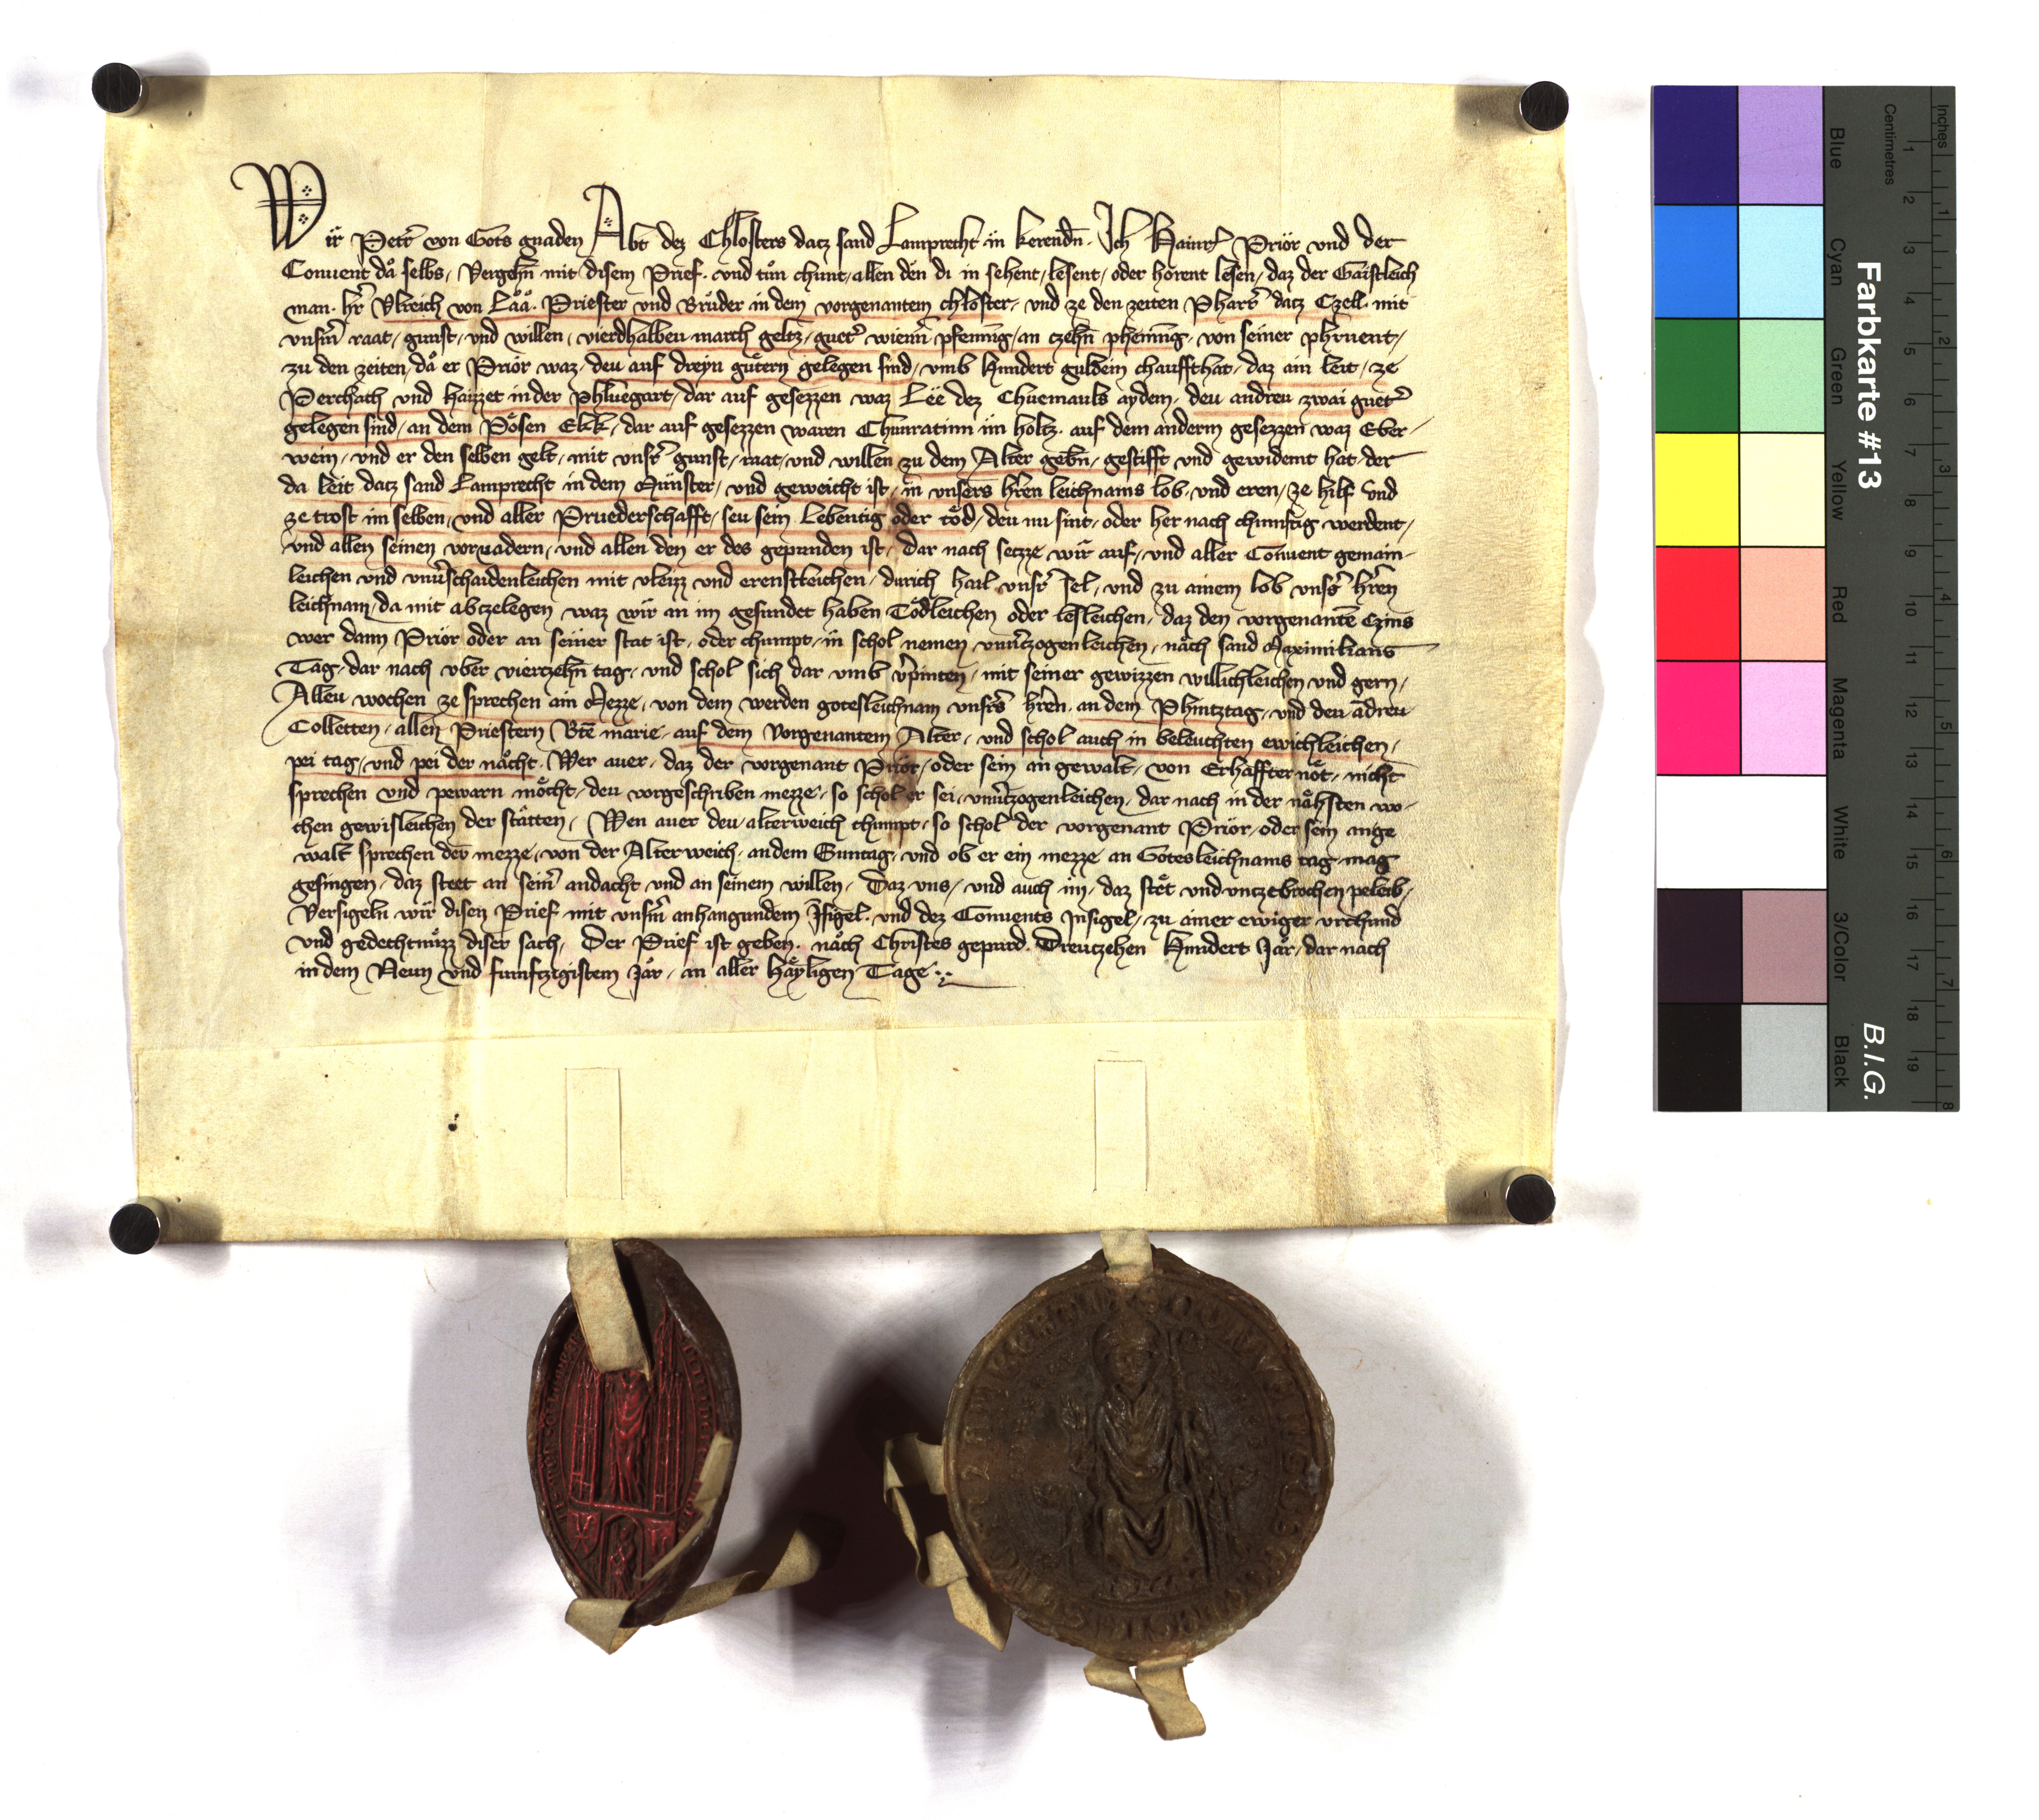 Wir Petr̄ von Gots gnaden Abt dez Chlosters datz sand Lamprecht in kerendn̄. Ich Hainr̄ Priör und der
Conuent då selbs, Vergehn̄ mit disem Prief. und tůn chunt, allen den di in sehent, lesent, oder hörent lesen, daz der Gaistleich
man. hr̄ Vlreich von Låå. Priester und Brůder in dem vorgenantem chloster, und ze den zeiten Pharr̄ datz Czell. mit
vnsm̄ raat, gunst, und willen, vierdhalben march geltz, guet̄ wienn̄ pfenning, an czehn̄ phenning, von seiner phruent,
zu den zeiten, då er Priör waz, deu auf dreyn gůtern gelegen sind, vmb Hundert guldein chaufft hat, daz ain leit, ze
Perchach und haizzet in der Phluegart, dar auf gesezzen waz Lëe dez Chuemauls aydem, deu andreu zwai guet̄
gelegen sind, an dem Pösen Ekk, dar auf gesezzen waren Chunratinn im holtz. auf dem anderm gesezzen waz Eber-
wein, und er den selben gelt, mit vnsr̄ gunst, raat, und willen zu dem Alter gebn̄, gestifft und gewidemt hat, der
da leit datz sand Lamprecht in dem Münster, und geweicht ist, in vnsers hr̄en leichnams lob, und eren, ze hilf und
ze trost im selben, und aller Pruederschafft, seu sein Lebentig oder töd, deu nu sint, oder her nach chunftig werdent,
und allen seinen voruadern, und allen den er des gepunden ist, Dar nach setzze wir auf, und aller Conuent gemain-
leichen und vnuͤschaidenleichen mit vleizz und ernstleichen, durich hail vnsr̄ sel, und zu ainem lob vnsr̄s hr̄en
leichnam, da mit abczelegen waz wir an im gesundet haben Tödleichen oder lesleichen, daz den vorgenantē Czins
wer dann Priör oder an seiner stat ist, oder chumpt, in schol nemen vnuͤtzogenleichen, nåch sand Maximilians
Tag, dar nach vber vierczehn̄ tag, und schol sich dar vmb v̄pinten, mit seiner gewizzen willichleichen und gern,
Alleu wochen ze sprechen ain Mezze, von dem werden gotesleichnam vnsr̄s hr̄en. an dem Phintztag, und deu ādreu
Colletten, allen Priestern Btē marie, auf dem Vorgenantem Alter, und schol auch in beleuchten ewichleichen,
pei tag, und pei der nåcht. Wer auer, daz der vorgenant Priör, oder sein an gewalt, von Erhaffter nöt, nicht
sprechen und pewarn möcht, deu vorgeschriben mezze, so schol er sei, vnuͤtzogenleichen, dar nach in der nåhsten wo-
chen gewisleichen der stätten, Wen auer deu, alterweich chumpt, so schol der vorgenant Priör, oder sein ange
walt sprechen der mezze, von der Alter weich, an dem Suntag, und ob er ein mezze an Gotesleichnams tag mag
gesingen, daz stet an seim̄ andacht und an seinem willen, Daz vns, und auch im, daz stët und vntzebrochen peleib,
Versigeln wir disen Prief mit vnsm̄ anhangundem Īsigel. und dez Conuents Insigel, zu ainer ewiger vrchund
und gedechtnůzz diser sach, Der Prief ist geben. nåch Christes gepurd. Dreutzehen Hundert Jar, dar nach
in dem Neun und funfftzigistem Jår, an aller Häyligen Tage
Farbkarte #13
B.I.G.
Blue Cyan Green Yellow Red Magenta White 3/Color Black
Inches 1 2 3 4 5 6 7 8
Centimetres 1 2 3 4 5 6 7 8 9 10 11 12 13 14 15 16 17 18 19